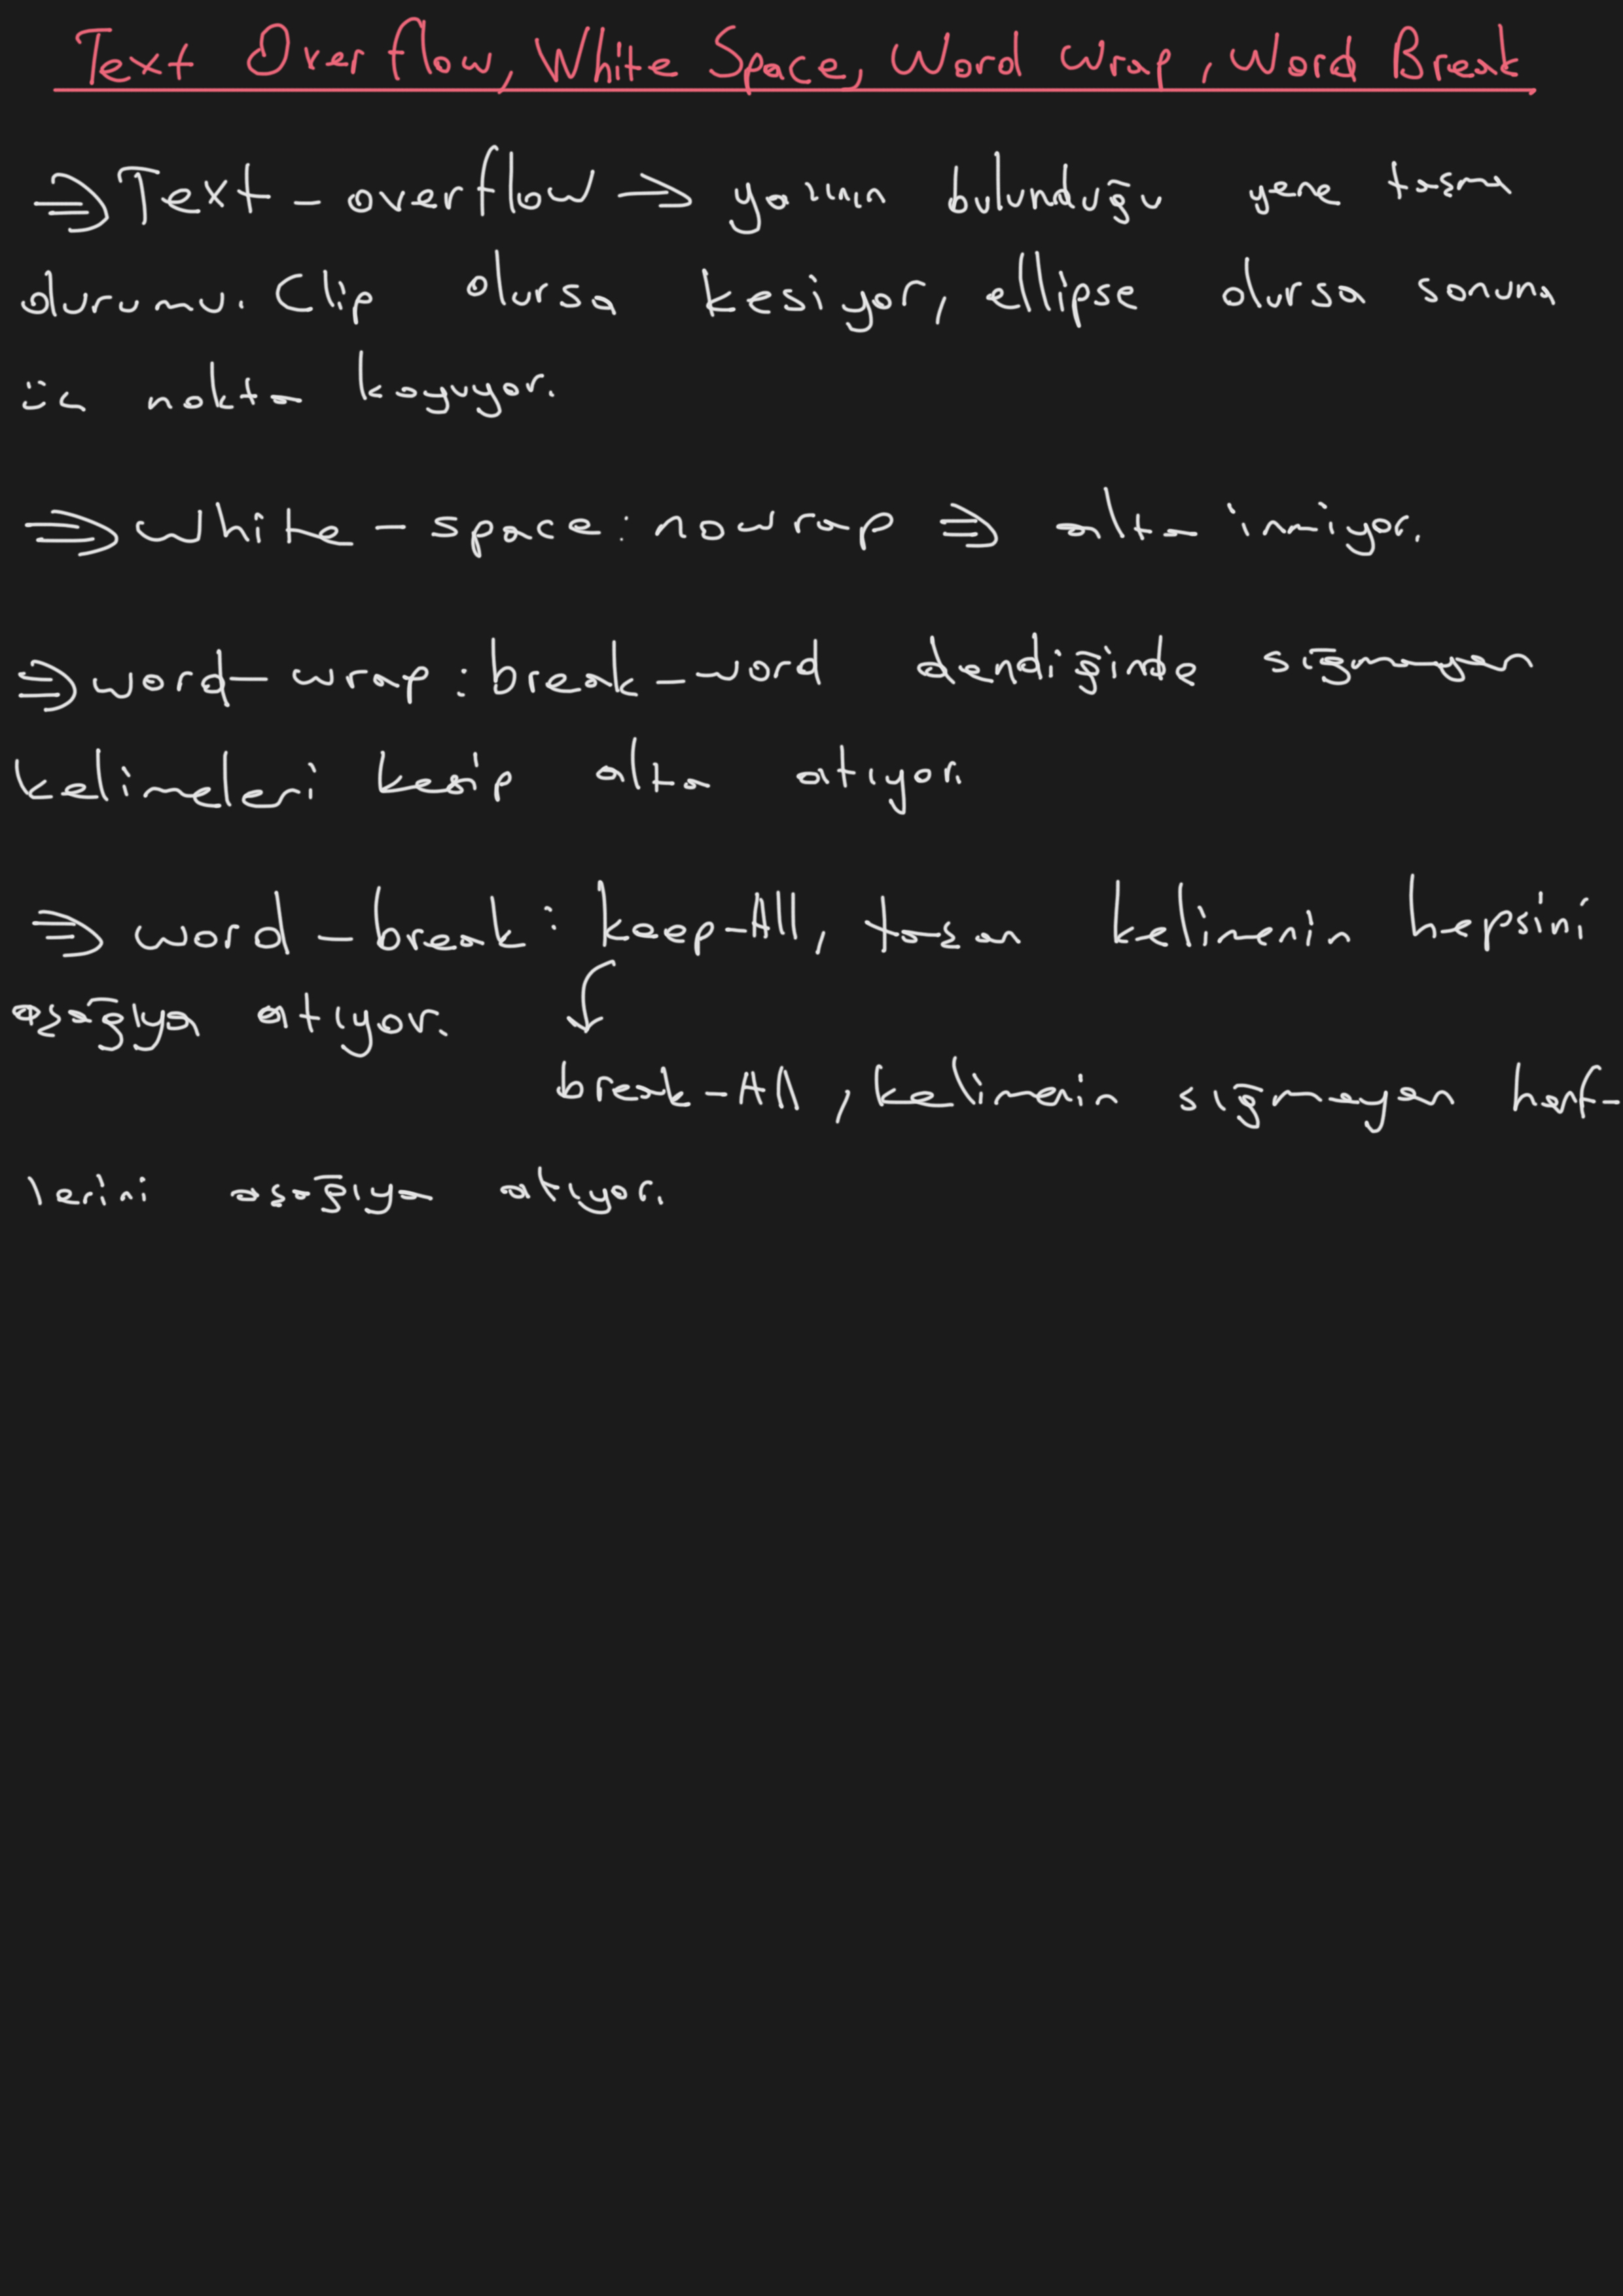 Text Overflow, White Space, Word Wrap, Word Break
⇒ Text-overflow → yazının bulunduğu yere taşma
durumu. Clip olursa kesiyor, ellipse olursa sonuna
üç nokta koyuyor.
⇒ White-space: nowrap ⇒ alta inmiyor.
⇒ word-wrap: break-word dendiğinde sığmayan
kelimeleri kesip alta atıyor.
⇒ word-break: keep-All, taşan kelimenin hepsini
aşağıya atıyor.
break-All, kelimenin sığmayan harf-
lerini aşağıya atıyor.